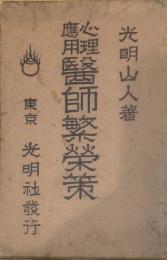 光明山人著
心理應用醫師繁榮策
東京 光明社發行